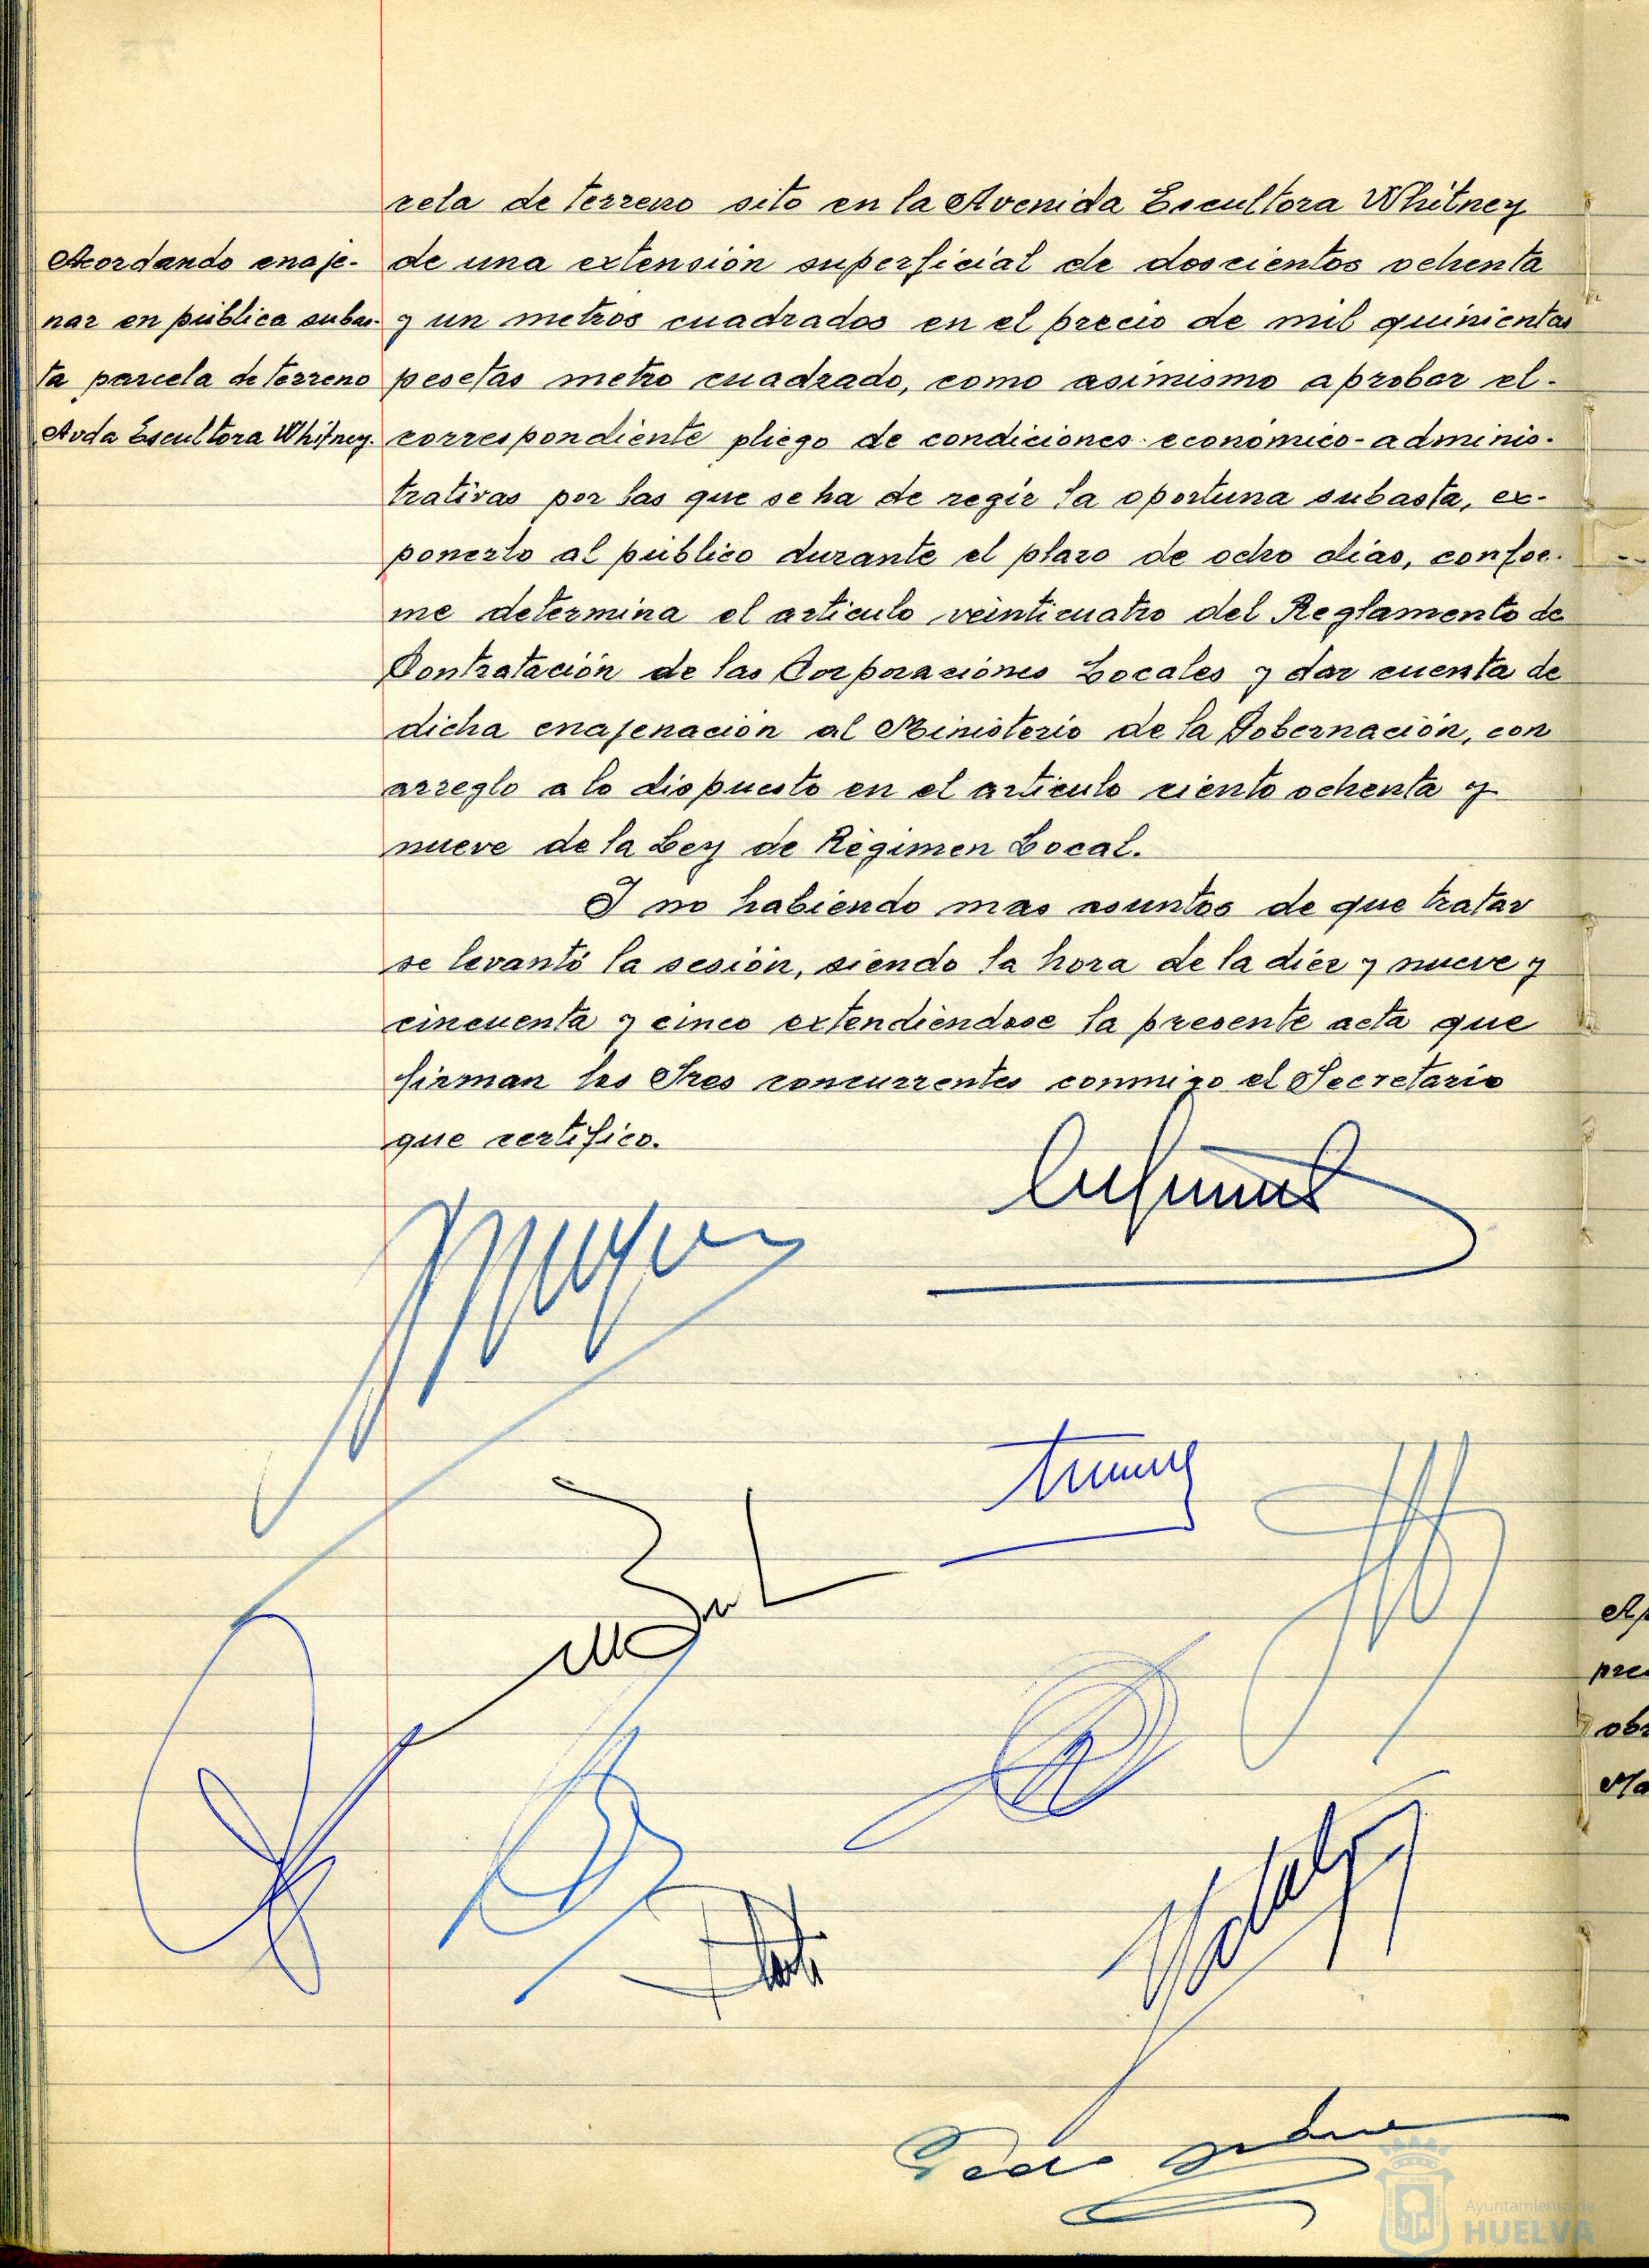 cela de terreno sito en la Avenida Escultora Whitney
Acordando enaje-
de una extensión superficial de doscientos ochenta
nar en pública subas-
y un metros cuadrados en el precio de mil quinientas
ta parcela de terreno
pesetas metro cuadrado, como asimismo aprobar el-
Avda Escultora Whitney.
correspondiente pliego de condiciones economico-adminis-
trativas por las que se ha de regir la oportuna subasta, ex-
ponerlo al público durante el plazo de ocho dias, confor-
me determina el articulo veinticuatro del Reglamento de
Contratación de las Corporaciones Locales y dar cuenta de
dicha enajenación al Ministerio de la Gobernación, con
arreglo a lo dispuesto en el articulo ciento ochenta y
nueve de la Ley de Régimen Local.
Y no habiendo mas asuntos de que tratar
se levantó la sesión, siendo la hora de la diez y nueve y
cincuenta y cinco extendiéndose la presente acta que
firman los Sres concurrentes conmigo el Secretario
que certifico.
Ap
pre
obr
Ma
Ayuntamiento de
HUELVA